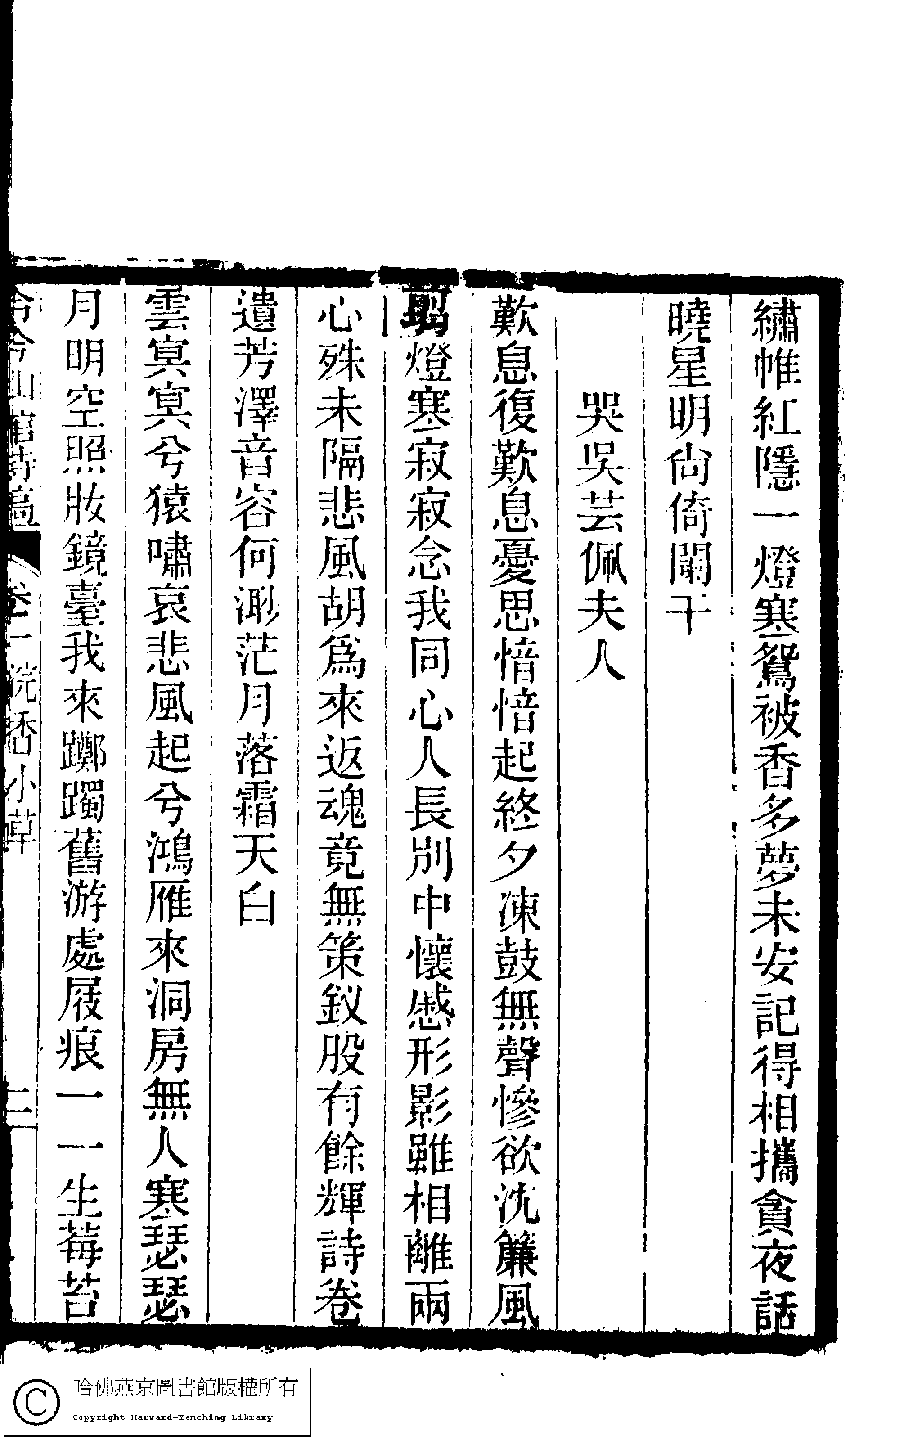 繡帷紅隱一燈寒鴛被香多夢未安記得相攜貪夜話
曉星明尙倚闌干
哭吳芸佩夫人
歎息復歎息憂思愔愔起終夕凍鼓無聲慘欲沈簾風
剪燈寒寂寂念我同心人長別中懷慼形影雖相離兩
心殊未隔悲風胡爲來返魂竟無策釵股有餘輝詩卷
遺芳澤音容何渺茫月落霜天白
雲冥冥兮猿嘯哀悲風起兮鴻雁來洞房無人寒瑟瑟
月明空照妝鏡臺我來躑躅舊游處屐痕一一生莓苔
山館詩
卷一
小草
二
哈佛燕京圖書館版權所有
Copyright Harvard-Yenching Library